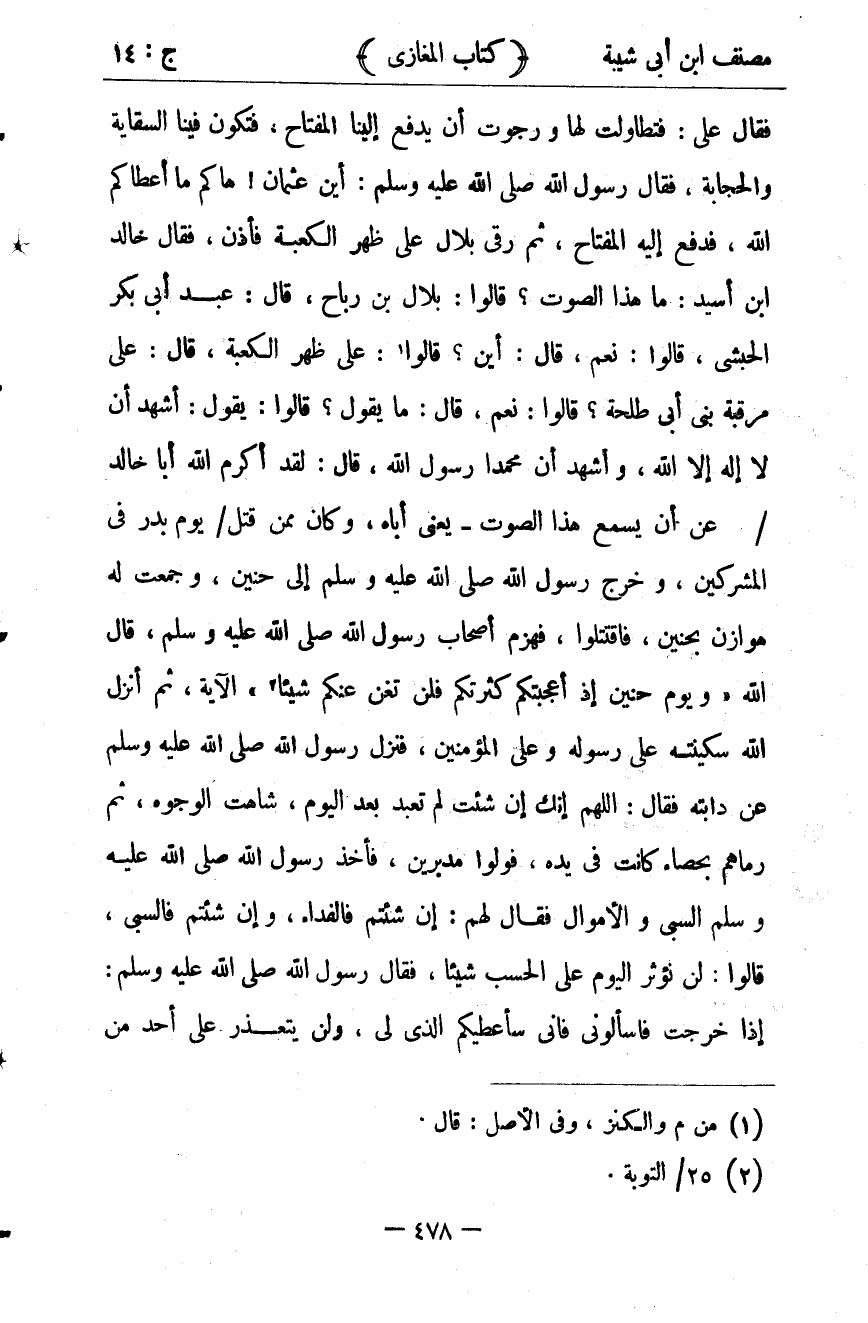 مصنف ابن أبى شيبة ﴿ كتاب المغازى ﴾ ج : ١٤
فقال على : فتطاولت لها و رجوت أن يدفع إلينا المفتاح ، فتكون فينا السقاية
والحجابة ، فقال رسول الله صلى الله عليه وسلم : أين عثمان ! هاكم ما أعطاكم
الله ، فدفع إليه المفتاح ، ثم رقى بلال على ظهر الكعبة فأذن ، فقال خالد
ابن أسيد : ما هذا الصوت ؟ قالوا : بلال بن رباح ، قال : عبد أبى بكر
الحبشى ، قالوا : نعم ، قال : أين ؟ قالوا١ : على ظهر الكعبة ، قال : على
مرقبة بنى أبى طلحة ؟ قالوا : نعم ، قال : ما يقول ؟ قالوا : يقول : أشهد أن
لا إله إلا الله ، و أشهد أن محمدا رسول الله ، قال : لقد أكرم الله أبا خالد
/ عن أن يسمع هذا الصوت ـ يعنى أباه ، وكان ممن قتل/ يوم بدر فى
المشركين ، و خرج رسول الله صلى الله عليه و سلم إلى حنين ، و جمعت له
هوازن بحنين ، فاقتتلوا ، فهزم أصحاب رسول الله صلى الله عليه و سلم ، قال
الله « و يوم حنين إذ أعجبتكم كثرتكم فلن تغن عنكم شيئا٢ » الآية ، ثم أنزل
الله سكينته على رسوله و على المؤمنين ، فنزل رسول الله صلى الله عليه وسلم
عن دابته فقال : اللهم إنك إن شئت لم تعبد بعد اليوم ، شاهت الوجوه ، ثم
رماهم بحصاء كانت فى يده ، فولوا مدبرين ، فأخذ رسول الله صلى الله عليه
و سلم السبى و الأموال فقال لهم : إن شئتم فالفداء ، و إن شئتم فالسبى ،
قالوا : لن نؤثر اليوم على الحسب شيئا ، فقال رسول الله صلى الله عليه وسلم :
إذا خرجت فاسألونى فانى سأعطيكم الذى لى ، ولن يتعذر على أحد من
(١) من م والكنز ، وفى الأصل : قال .
(٢) ٢٥/ التوبة .
— ٤٧٨ —